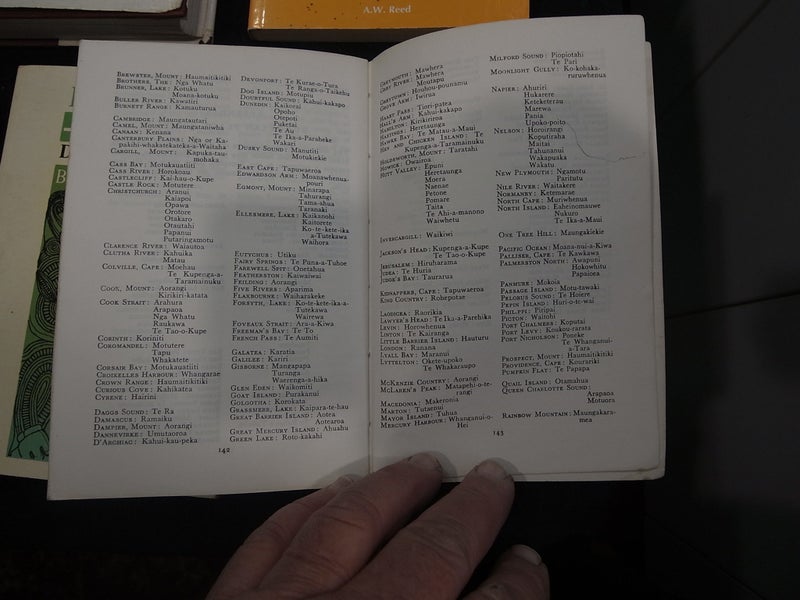 A.W. Reed
BREWSTER, MOUNT : Haumaitikitiki
BROTHERS, THE : Nga Whatu
BRUNNER, LAKE : Kotuku
Moana-kotuku
BULLER RIVER : Kawatiri
BURNETT RANGE : Kamauturua
CAMBRIDGE : Maungatautari
CAMEL, MOUNT : Maungataniwha
CANAAN : Kenana
CANTERBURY PLAINS : Nga or Ka-
pakihi-whakatekateka-a-Waitaha
CARGILL, MOUNT : Kapuka-tau-
mohaka
CASS BAY : Motukauatiiti
CASS RIVER : Horokoau
CASTLECLIFF : Kai-hau-o-Kupe
CASTLE ROCK : Motutere
CHRISTCHURCH : Aranui
Kaiapoi
Opawa
Orotore
Otakaro
Otautahi
Papanui
Putaringamotu
CLARENCE RIVER : Waiautoa
CLUTHA RIVER : Kahuika
Matau
COLVILLE, CAPE : Moehau
Te Kupenga-a-
Taramainuku
COOK, MOUNT : Aorangi
Kirikiri-katata
COOK STRAIT : Arahura
Arapaoa
Nga Whatu
Raukawa
Te Tao-o-Kupe
CORINTH : Koriniti
COROMANDEL : Motutere
Tapu
Whakatete
CORSAIR BAY : Motukauatiiti
CROIXELLES HARBOUR : Whangarae
CROWN RANGE : Haumaitikitiki
CURIOUS COVE : Kahikatea
CYRENE : Hairini
DAGGS SOUND : Te Ra
DAMASCUS : Ramaiku
DAMPIER, MOUNT : Aorangi
DANNEVIRKE : Umutaoroa
D'ARCHIAC : Kahui-kau-peka
DEVONPORT : Te Kurae-o-Tura
Te Ranga-o-Taikehu
DOG ISLAND : Motupiu
DOUBTFUL SOUND : Kahui-kakapo
DUNEDIN : Kaikorai
Opoho
Otepoti
Puketai
Te Au
Te Ika-a-Paraheke
Wakari
DUSKY SOUND : Manutiti
Motukiekie
EAST CAPE : Tapuwaeroa
EDWARDSON ARM : Moanawhenua-
pouri
EGMONT, MOUNT : Minarapa
Tahurangi
Tama-ahua
Taranaki
ELLESMERE, LAKE : Kaikanohi
Kaitorete
Ko-te-kete-ika
a-Tutekawa
Waihora
EUTYCHUS : Utiku
FAIRY SPRINGS : Te Puna-a-Tuhoe
FAREWELL SPIT : Onetahua
FEATHERSTON : Kaiwaiwai
FEILDING : Aorangi
FIVE RIVERS : Aparima
FLAXBOURNE : Waiharakeke
FORSYTH, LAKE : Ko-te-kete-ika-a-
Tutekawa
Wairewa
FOVEAUX STRAIT : Ara-a-Kiwa
FREEMAN'S BAY : Te To
FRENCH PASS : Te Aumiti
GALATEA : Karatia
GALILEE : Kariri
GISBORNE : Mangapapa
Turanga
Waerenga-a-hika
GLEN EDEN : Waikomiti
GOAT ISLAND : Purakanui
GOLGOTHA : Korokata
GRASSMERE, LAKE : Kaipara-te-hau
GREAT BARRIER ISLAND : Aotea
Aotearoa
GREAT MERCURY ISLAND : Ahuahu
GREEN LAKE : Roto-kakahi
142
GREYMOUTH : Mawhera
GREY RIVER : Mawhera
Moutapu
GREYTOWN : Houhou-pounamu
GROVE ARM : Iwirua
HAAST PASS : Tiori-patea
HALL'S ARM : Kahui-kakapo
HAMILTON : Kirikiriroa
HASTINGS : Heretaunga
HAWKE BAY : Te Matau-a-Maui
HEN AND CHICKEN ISLAND : Te
Kupenga-a-Taramainuku
HOLDSWORTH, MOUNT : Taratahi
HOWICK : Owairoa
HUTT VALLEY : Epuni
Heretaunga
Moera
Naenae
Petone
Pomare
Taita
Te Ahi-a-manono
Waiwhetu
INVERCARGILL : Waikiwi
JACKSON'S HEAD : Kupenga-a-Kupe
Te Tao-o-Kupe
JERUSALEM : Hiruharama
JUDEA : Te Huria
JUDGE'S BAY : Taurarua
KIDNAPPERS, CAPE : Tapuwaeroa
KING COUNTRY : Rohepotae
LAODICEA : Raorikia
LAWYER'S HEAD : Te Ika-a-Parehika
LEVIN : Horowhenua
LINTON : Te Kairanga
LITTLE BARRIER ISLAND : Hauturu
LONDON : Ranana
LYALL BAY : Maranui
LYTTELTON : Okete-upoko
Te Whakaraupo
MCKENZIE COUNTRY : Aorangi
MCLAREN'S PEAK : Matapehi-o-te-
rangi
MACEDONIA : Makeronia
MARTON : Tutaenui
MAYOR ISLAND : Tuhua
MERCURY HARBOUR : Whanganui-o-
Hei
MILFORD SOUND : Piopiotahi
Te Pari
MOONLIGHT GULLY : Ko-kohaka-
ruruwhenua
NAPIER : Ahuriri
Hukarere
Keteketerau
Marewa
Pania
Upoko-poito
NELSON : Horoirangi
Koputirana
Maitai
Tahunanui
Wakapuaka
Wakatu
NEW PLYMOUTH : Ngamotu
Paritutu
NILE RIVER : Waitakere
NORMANBY : Ketemarae
NORTH CAPE : Muriwhenua
NORTH ISLAND : Eaheinomauwe
Nukuro
Te Ika-a-Maui
ONE TREE HILL : Maungakiekie
PACIFIC OCEAN : Moana-nui-a-Kiwa
PALLISER, CAPE : Te Kawakawa
PALMERSTON NORTH : Awapuni
Hokowhitu
Papaioea
PANMURE : Mokoia
PASSAGE ISLAND : Motu-tawaki
PELORUS SOUND : Te Hoiere
PEPIN ISLAND : Huri-o-te-wai
PHILIPPI : Piripai
PICTON : Waitohi
PORT CHALMERS : Koputai
PORT LEVY : Koukou-rarata
PORT NICHOLSON : Poneke
Te Whanganui-
a-Tara
PROSPECT, MOUNT : Haumaitikitiki
PROVIDENCE, CAPE : Kourariki
PUMPKIN FLAT : Te Papapa
QUAIL ISLAND : Otamahua
QUEEN CHARLOTTE SOUND :
Arapaoa
Motuora
RAINBOW MOUNTAIN : Maungakara-
mea
143